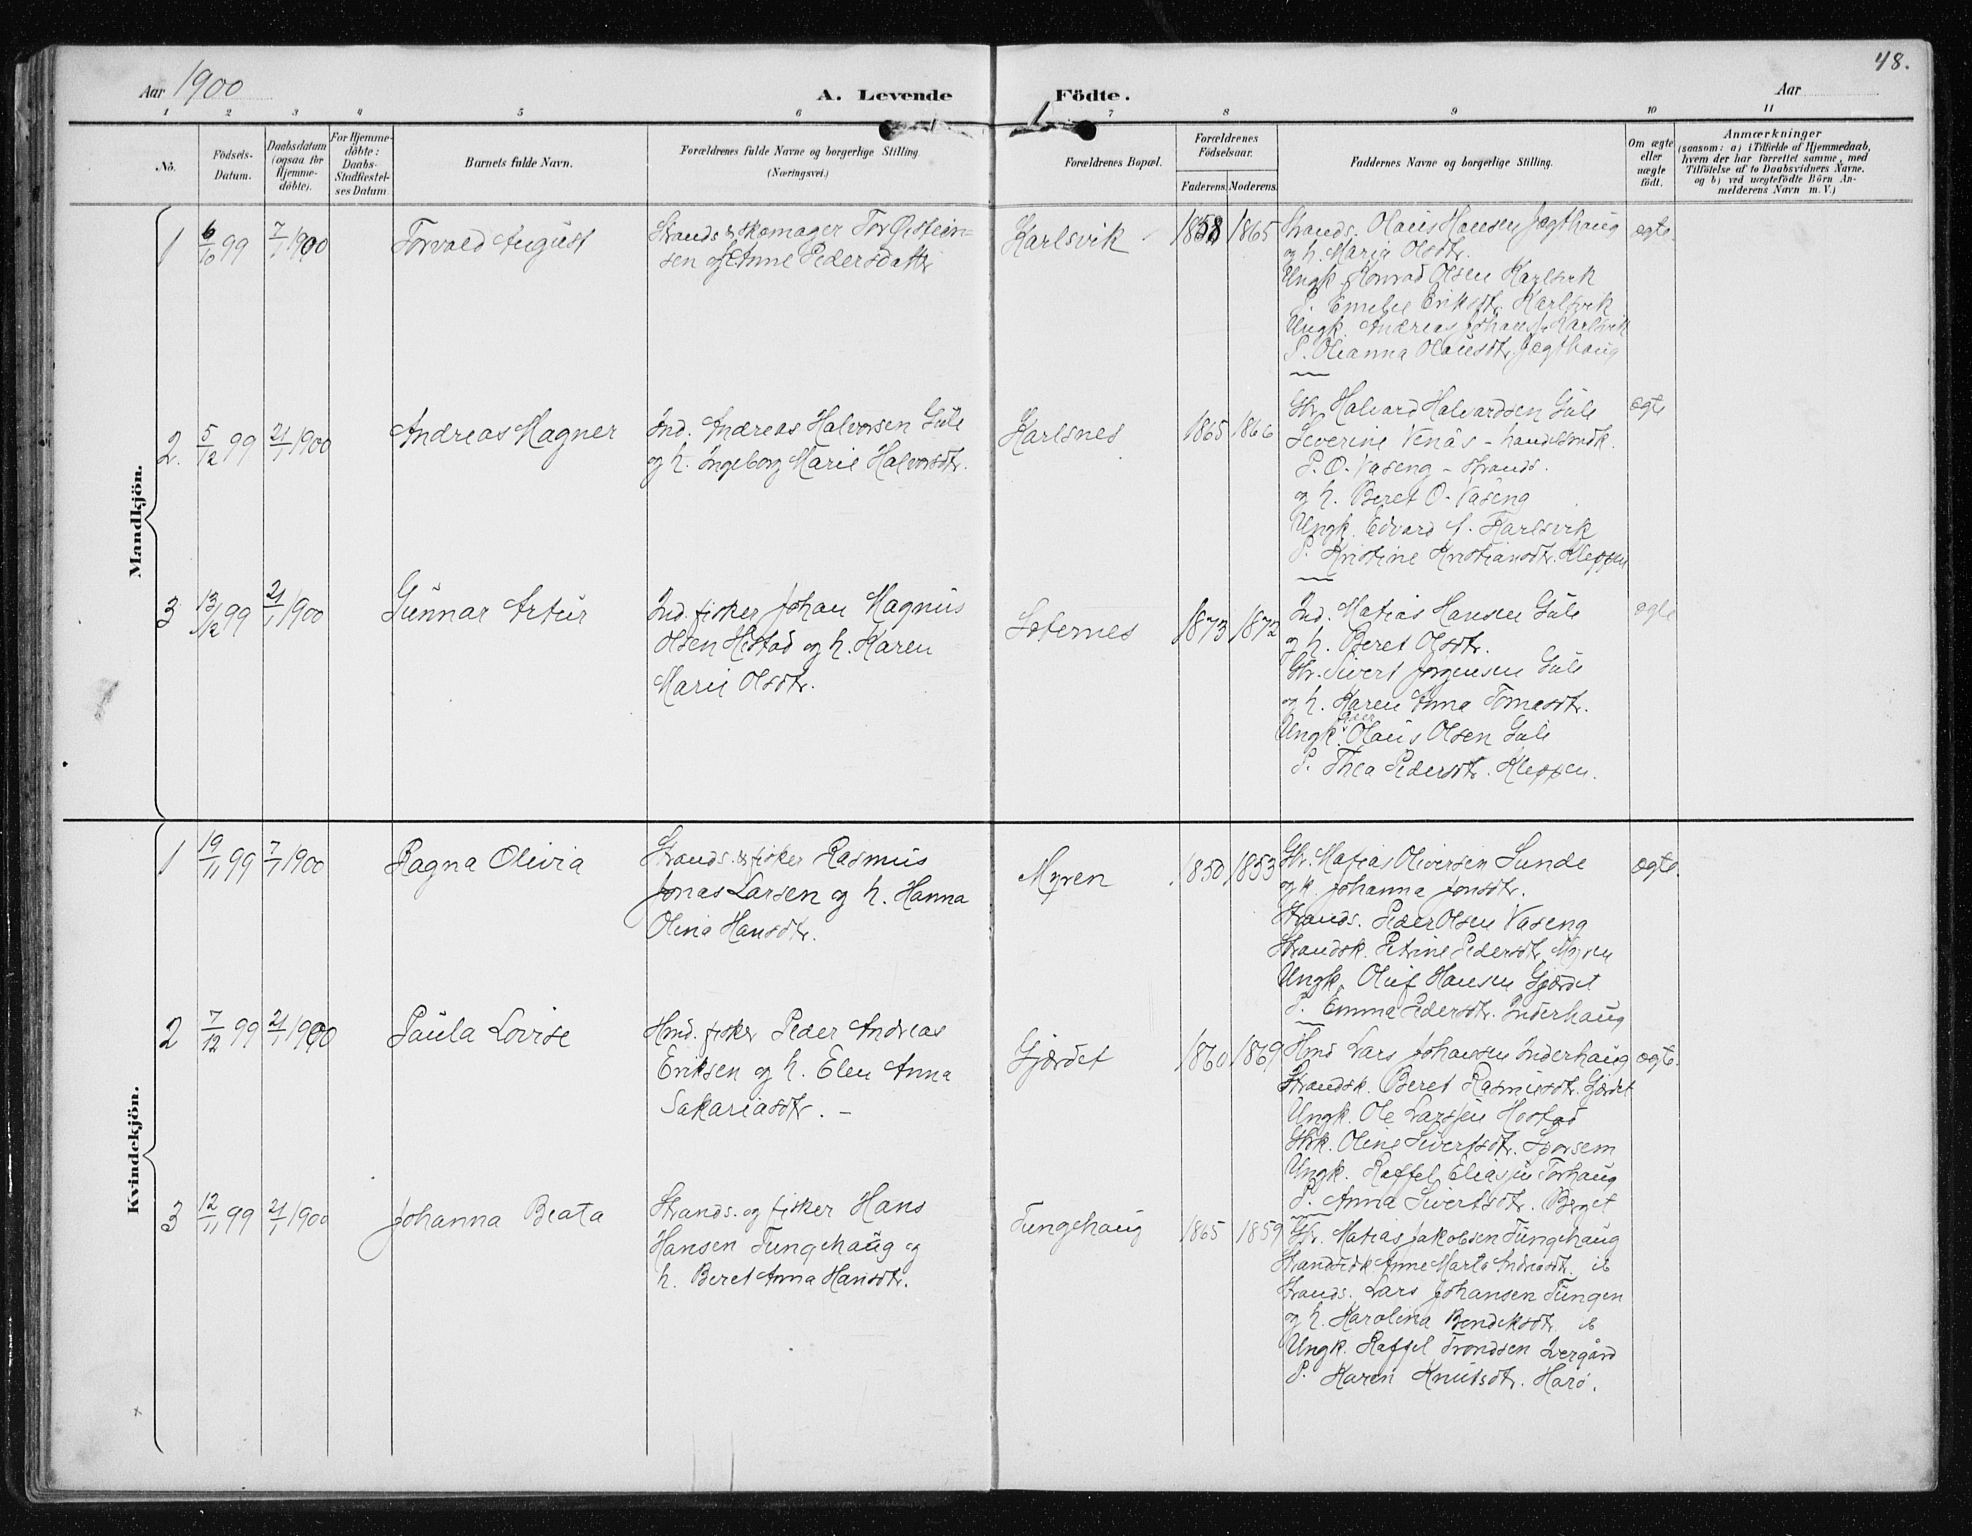 Aar 1900
A. Levende Födte.
Aar
48.
1 2 3 4 5 6 7 8 9 10 11
No.
Födsels-
Datum.
Daabsdatum
(ogsaa for
Hjemme-
döbte).
For Hjemme-
döbte:
Daabs-
Stadfæstel-
ses Datum.
Barnets fulde Navn.
Forældrenes fulde Navne og borgerlige Stilling
(Næringsvei.)
Forældrenes Bopæl.
Forældrenes
Födselsaar.
Faderens. Moderens.
Faddernes Navne og borgerlige Stilling.
Om ægte
eller
uægte
födt.
Anmærkninger
(saasom: a) i Tilfælde af Hjemmedaab,
hvem der har forrettet samme, med
Tilföielse af to Daabsvidners Navne.
og b) ved uægtefödte Börn An-
melderens Navn m. V.)
Mandkjön.
1 6/10 99 7/1 1900 Torvald August
Strands. & skomager Tor Østein-
sen og h. Anne Pedersdatter
Karlsvik 1858 1865
Strands. Olaus Hansen Jægthaug
og h. Maria Olsdtr.
Ungk. Konrad Olsen Karlsvik
P. Emelie Eriksdtr. Karlsvik
Ungk. Andreas Johans. Karlsvik
P. Olianna Olausdtr. Jægthaug
ægte.
2. 5/12 99 21/1 1900 Andreas Magner
Ind. Andreas Halvorsen Gule
og h. Ingeborg Marie Halvorsdtr.
Karlsnes 1865 1866
Gbr. Halvard Halvardsen Gule
Severine Venås - handelsmdk.
P. O. Vaseng - Strands.
og h. Beret O. Vaseng
Ungk. Edvard A. Karlsvik
P. Kristine Kristiansdtr. Kleppen
ægte
3 13/12 99 21/1 1900 Gunnar Artur
Ind. fisker Johan Magnus
Olsen Hestad og h. Karen
Marie Olsdtr.
Seternes 1873 1872
Ind. Matias Hansen Gule
og h. Beret Olsdtr.
Gbr. Sivert Jørgensen Gule
og h. Karen Anna Tomasdtr.
Ungk. Olaus Olsen Gule
P. Thea Pedersdtr. Kleppen.
ægte
Kvindekjön.
1 19/11 99 7/1 1900 Ragna Olivia
Strands. & fisker Rasmus
Jonas Larsen og h. Hanna
Olina Hansdtr.
Myren 1850 1853
Gbr. Matias Oliversen Sunde
og h. Johanna Jonsdtr.
Strands. Peder Olsen Vaseng
Strandsk. Petrine Pedersdtr. Myren
Ungk. Oluf Hansen Gjerdet
P. Emma Pedersdtr. Inderhaug
ægte.
2 7/12 99 21/1 1900 Paula Lovise
Hmd. fisker Peder Andreas
Eriksen og h. Elen Anna
Sakariasdtr. -
Gjærdet 1860 1869
Hmd Lars Johansen Inderhaug
Strandsk. Beret Rasmusdtr. Gjerdet
Ungk. Ole Larssen Hostad
Gbk. Oline Sivertsdtr.
Ungk. Raffel Eliassen Torhaug
P. Anna Sivertsdtr. Berget
ægte.
3 12/11 99 21/1 1900 Johanna Beata
Strands. og fisker Hans
Hansen Tungehaug og
h. Beret Anna Hansdtr.
Tungehaug 1865 1859
Gbr. Matias Jakobsen Tungehaug
Anne Marta
Strands. Lars Johansen Tungen
og h. Karolina Bendiksdtr. ib
Ungk. Raffel Trondsen Ivergård
P. Karen Knutsdtr. Harø.